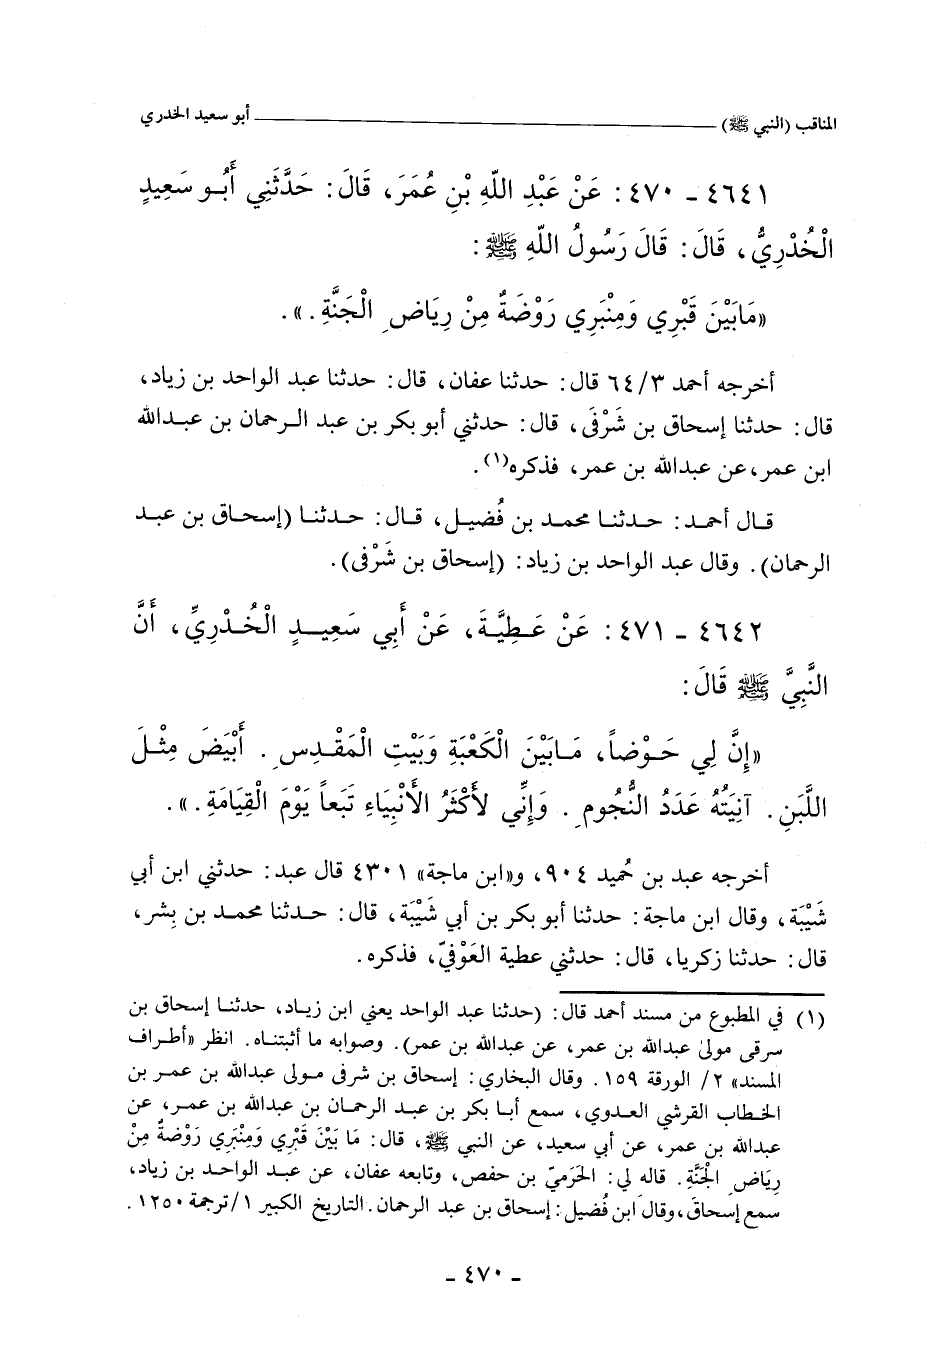 المناقب (النبي ﷺ) ــــــــــ أبو سعيد الخدري
٤٦٤١ - ٤٧٠ : عَنْ عَبْدِ اللّهِ بْنِ عُمَرَ، قَالَ: حَدَّثَنِي أَبُو سَعِيدٍ
الْخُدْرِيُّ، قَالَ: قَالَ رَسُولُ اللّهِ ﷺ :
«مَابَيْنَ قَبْرِي وَمِنْبَرِي رَوْضَةٌ مِنْ رِيَاضِ الْجَنَّةِ.».
أخرجه أحمد ٦٤/٣ قال: حدثنا عفان، قال: حدثنا عبد الواحد بن زياد،
قال: حدثنا إسحاق بن شَرْفَى، قال: حدثني أبو بكر بن عبد الرحمان بن عبدالله
ابن عمر، عن عبدالله بن عمر، فذكره(١).
قال أحمد: حدثنا محمد بن فُضيل، قال: حدثنا (إسحاق بن عبد
الرحمان). وقال عبد الواحد بن زياد: (إسحاق بن شَرْفى).
٤٦٤٢ - ٤٧١ : عَنْ عَطِيَّةَ، عَنْ أَبِي سَعِيدٍ الْخُدْرِيِّ، أَنَّ
النَّبِيَّ ﷺ قَالَ:
«إِنَّ لِي حَوْضاً، مَابَيْنَ الْكَعْبَةِ وَبَيْتِ الْمَقْدِسِ. أَبْيَضَ مِثْلَ
اللَّبَنِ. آنِيَتُهُ عَدَدُ النُّجُومِ. وَإِنِّي لأَكْثَرُ الأَنْبِيَاءِ تَبَعاً يَوْمَ الْقِيَامَةِ.».
أخرجه عبد بن حُميد ٩٠٤، و«ابن ماجة» ٤٣٠١ قال عبد: حدثني ابن أبي
شَيْبَة، وقال ابن ماجة: حدثنا أبو بكر بن أبي شَيْبَة، قال: حدثنا محمد بن بِشر،
قال: حدثنا زكريا، قال: حدثني عطية العَوْفيّ، فذكره.
(١) في المطبوع من مسند أحمد قال: (حدثنا عبد الواحد يعني ابن زياد، حدثنا إسحاق بن
سرقى مولىٰ عبدالله بن عمر، عن عبدالله بن عمر). وصوابه ما أثبتناه. انظر «أطراف
المسند» ٢/ الورقة ١٥٩. وقال البخاري: إسحاق بن شرفى مولى عبدالله بن عمر بن
الخطاب القرشي العدوي، سمع أبا بكر بن عبد الرحمان بن عبدالله بن عمر، عن
عبدالله بن عمر، عن أبي سعيد، عن النبي ﷺ، قال: مَا بَيْنَ قَبْرِي وَمِنْبَرِي رَوْضَةٌ مِنْ
رِيَاضِ الْجَنَّةِ. قاله لي: الحَرَميّ بن حفص، وتابعه عفان، عن عبد الواحد بن زياد،
سمع إسحاق، وقال ابن فُضيل: إسحاق بن عبد الرحمان. التاريخ الكبير ١/ترجمة ١٢٥٠.
- ٤٧٠ -